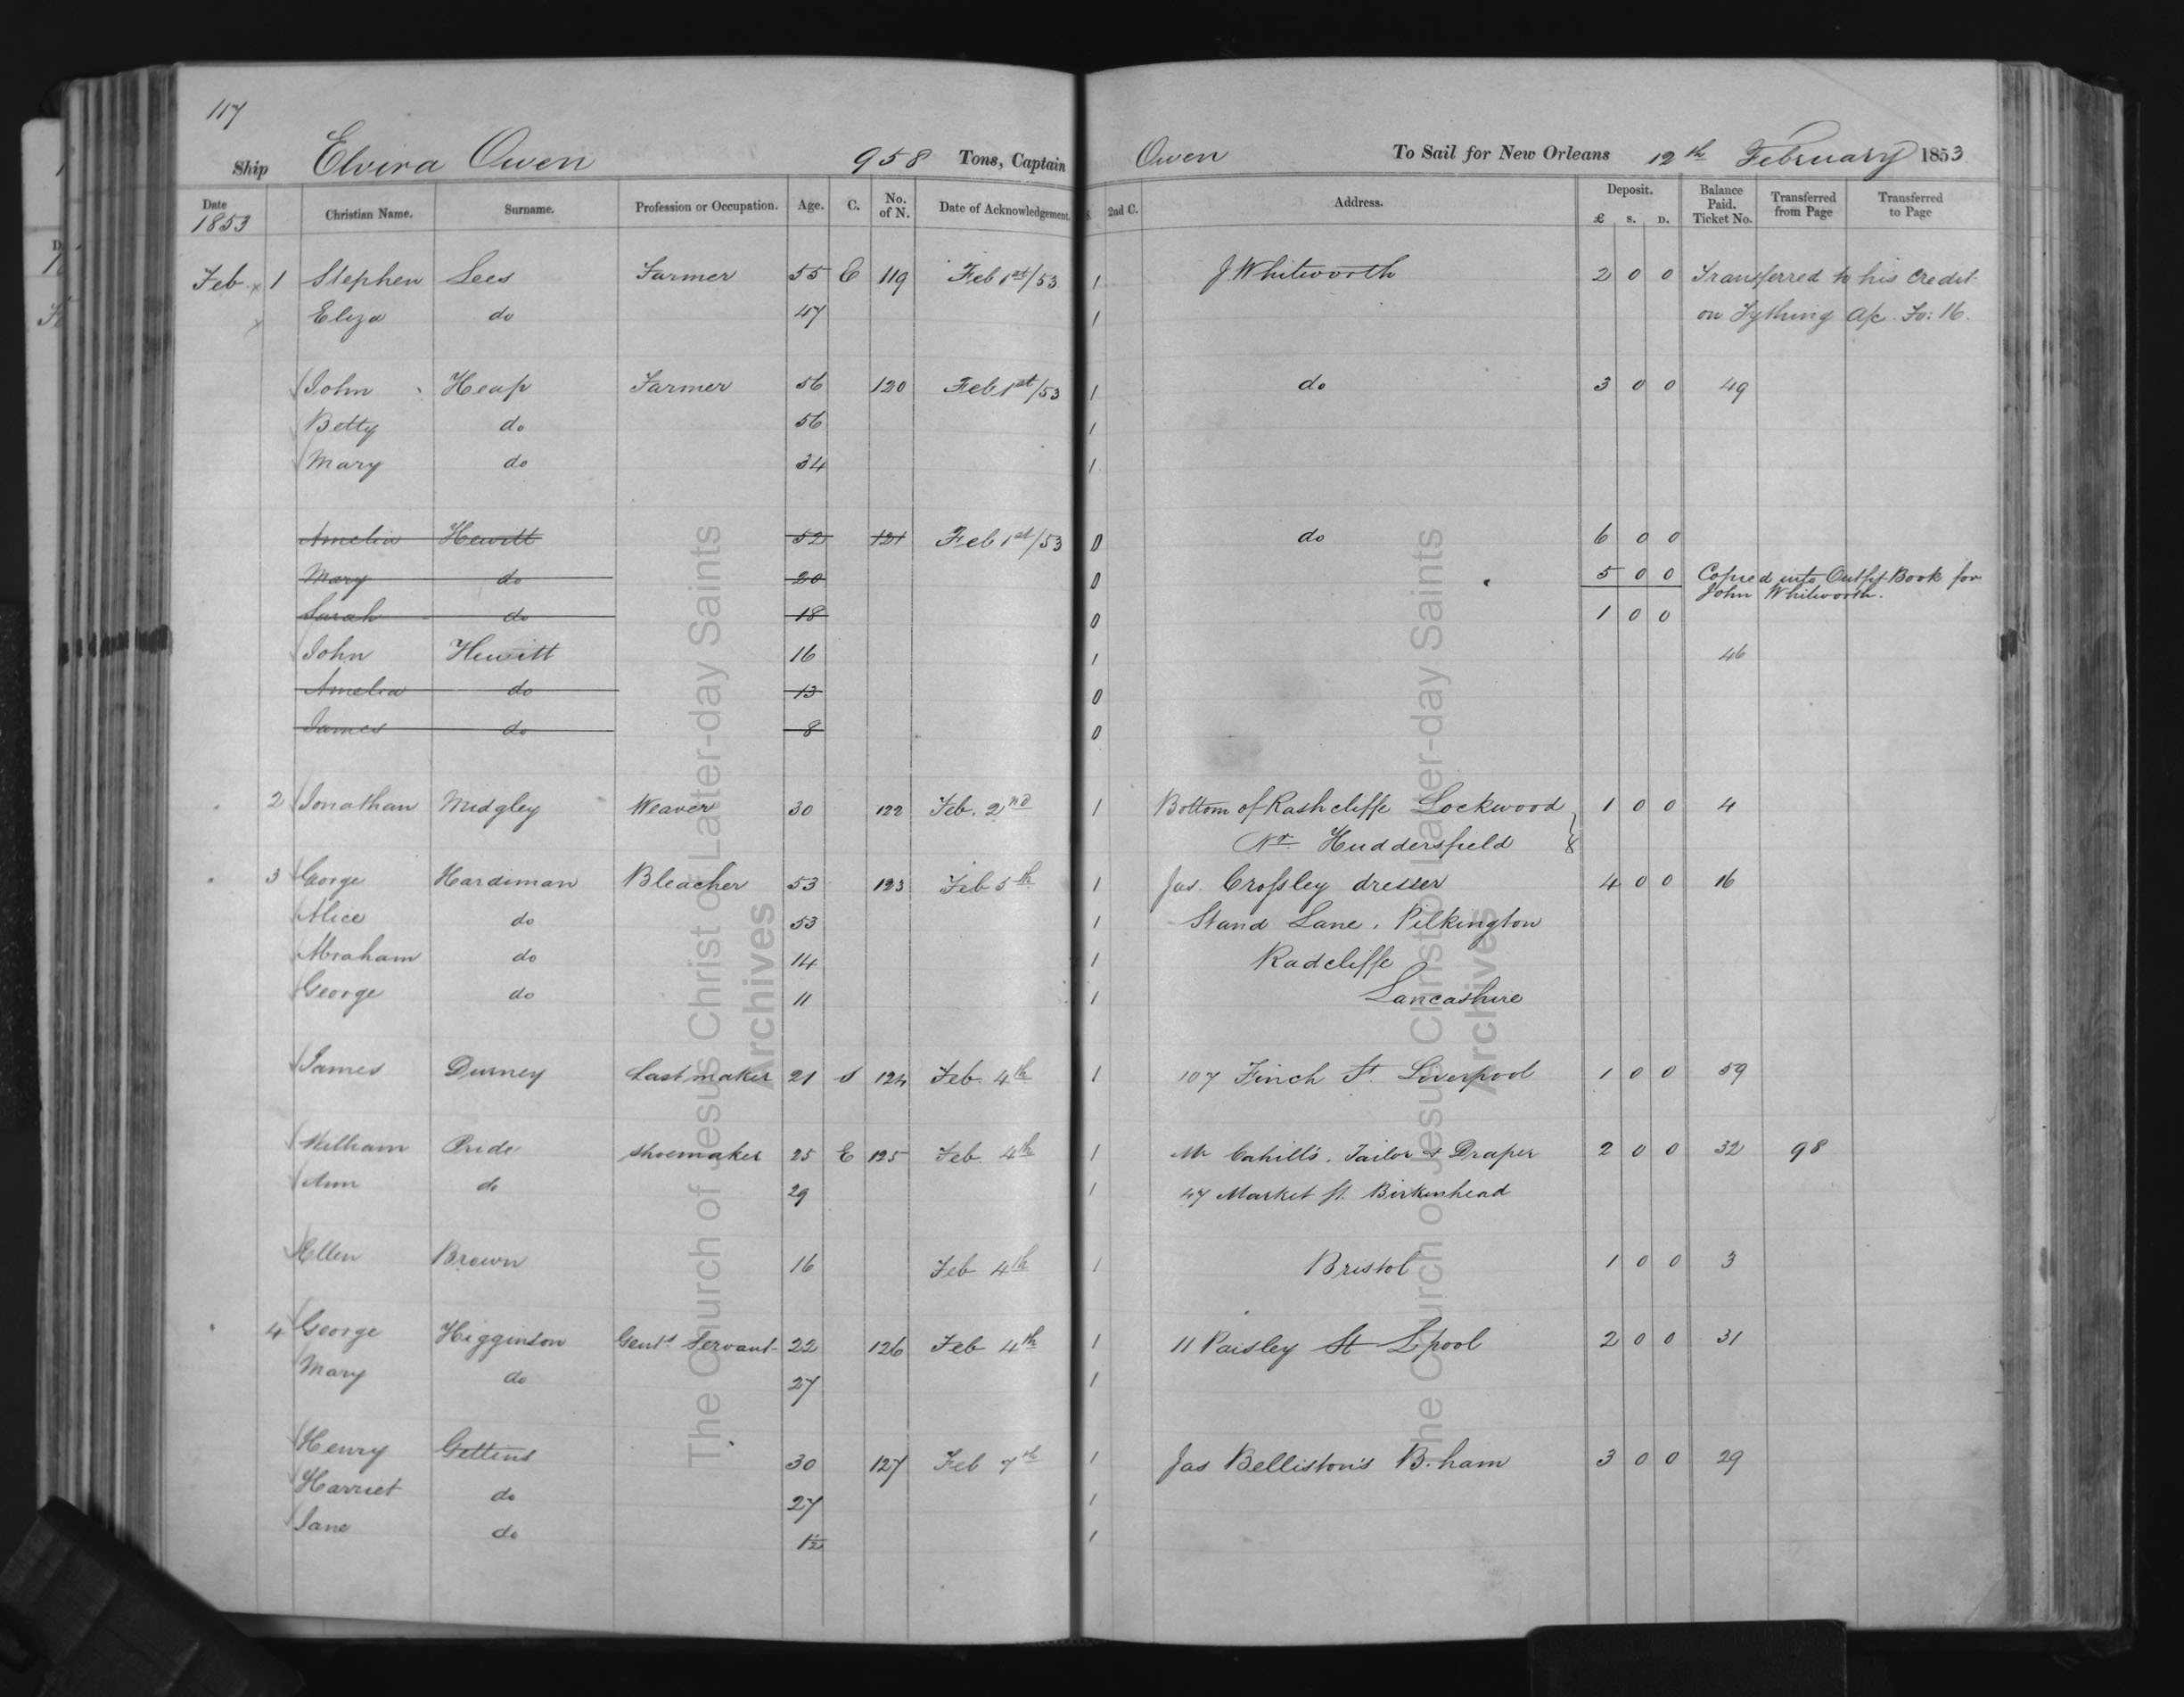 117
Ship Elvira Owen 958 Tons, Captain Owen To Sail for New Orleans 12th February 1853
Date 1853 Christian Name. Surname. Profession or Occupation. Age. C. No. of N. Date of Acknowledgement. S. 2nd C. Address. Deposit. £ S. D. Balance Paid. Ticket No. Transferred from Page Transferred to Page
Feb x 1 Stephen Lees Farmer 55 E 119 Feb 1st/53 1 J Whitworth 2 0 0 Transferred to his Credit
x Eliza do 47 1 on Tything A/c. Fo: 16.
John Heap Farmer 56 120 Feb 1st/53 1 do 3 0 0 49
Betty do 56 1
Mary do 34 1
Amelia Hewitt 52 121 Feb 1st/53 0 do 6 0 0
Mary do 20 0 5 0 0 Copied into Outfit Book for
John Whitworth.
Sarah do 18 0 1 0 0
John Hewitt 16 1 46
Amelia do 13 0
James do 8 0
2 Jonathan Midgley Weaver 30 122 Feb. 2nd 1 Bottom of Rashcliffe Lockwood 1 0 0 4
Nr. Huddersfield
3 George Hardiman Bleacher 53 123 Feb 5th 1 Jas. Crossley dresser 4 0 0 16
Alice do 53 1 Stand Lane, Pilkington
Abraham do 14 1 Radcliffe
George do 11 1 Lancashire
James Durney Last maker 21 S 124 Feb. 4th 1 107 Finch St. Liverpool 1 0 0 59
William Pride Shoemaker 25 E 125 Feb. 4th 1 Mr Cahill's, Tailor & Draper 2 0 0 32 98
Ann do 29 1 47 Market St. Birkenhead
Ellen Brown 16 Feb 4th 1 Bristol 1 0 0 3
4 George Higginson Gents Servant 22 126 Feb 4th 1 11 Paisley St L.pool 2 0 0 31
Mary do 27 1
Henry Gittens 30 127 Feb 7th 1 Jas Belliston's B.ham 3 0 0 29
Harriet do 27 1
Jane do 1½ 1
The Church of Jesus Christ of Latter-day Saints
Archives
The Church of Jesus Christ of Latter-day Saints
Archives